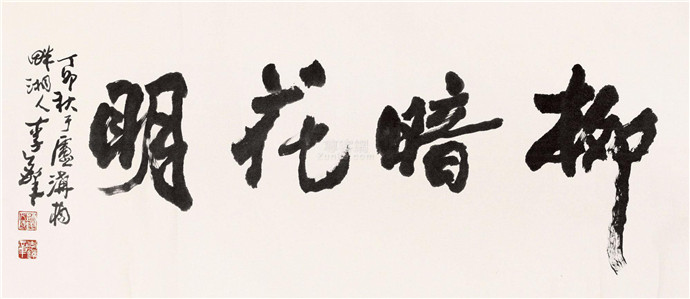 柳暗花明
丁卯秋于芦沟桥
畔湘人李铎